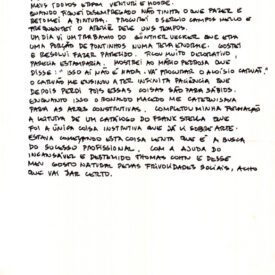 MEUS IRMÃOS ERAM VENTURI E
QUANDO FIQUEI DESEMPREGADO NÃO TINHA O QUE FAZER E
RETOMEI A PINTURA. PROCUREI O SERGIO CAMPOS MELLO E
FREQUENTEI O ATELIÊ DELE DOS TEMPOS.
UM DIA VI UM TRABALHO DO GÜNTHER UECKER QUE ERA
UMA PORÇÃO DE PONTINHOS NUMA TELA ENORME. GOSTEI
E RESOLVI FAZER PARECIDO. FICOU MUITO DECORATIVO,
PARECIA ESTAMPARIA. MOSTREI AO MÁRIO PEDROSA QUE
DISSE: "ISSO AÍ NÃO É NADA. VÁ PROCURAR O ALOÍSIO CARVÃO".
O CARVÃO ME ENSINOU A TER INFINITA PACIÊNCIA QUE
DEPOIS PERDI POIS ESSAS COISAS SÃO PARA SÁBIOS.
ENQUANTO ISSO O RONALDO MACEDO ME CATEQUISAVA
PARA AS ARTES CONSTRUTIVAS. COMPLETOU MINHA FORMAÇÃO
A LEITURA DE UM CATÁLOGO DO FRANK STELLA QUE
FOI A ÚNICA COISA INSTRUTIVA QUE JÁ LI SOBRE ARTE.
ESTAVA COMEÇANDO ESTA COISA LENTA QUE É A BUSCA
DO SUCESSO PROFISSIONAL. COM A AJUDA DO
INCANSÁVEL E DESTEMIDO THOMAS COHN E DESSE
MEU GOSTO NATURAL PELAS FRIVOLIDADES SOCIAIS, ACHO
QUE VAI DAR CERTO.